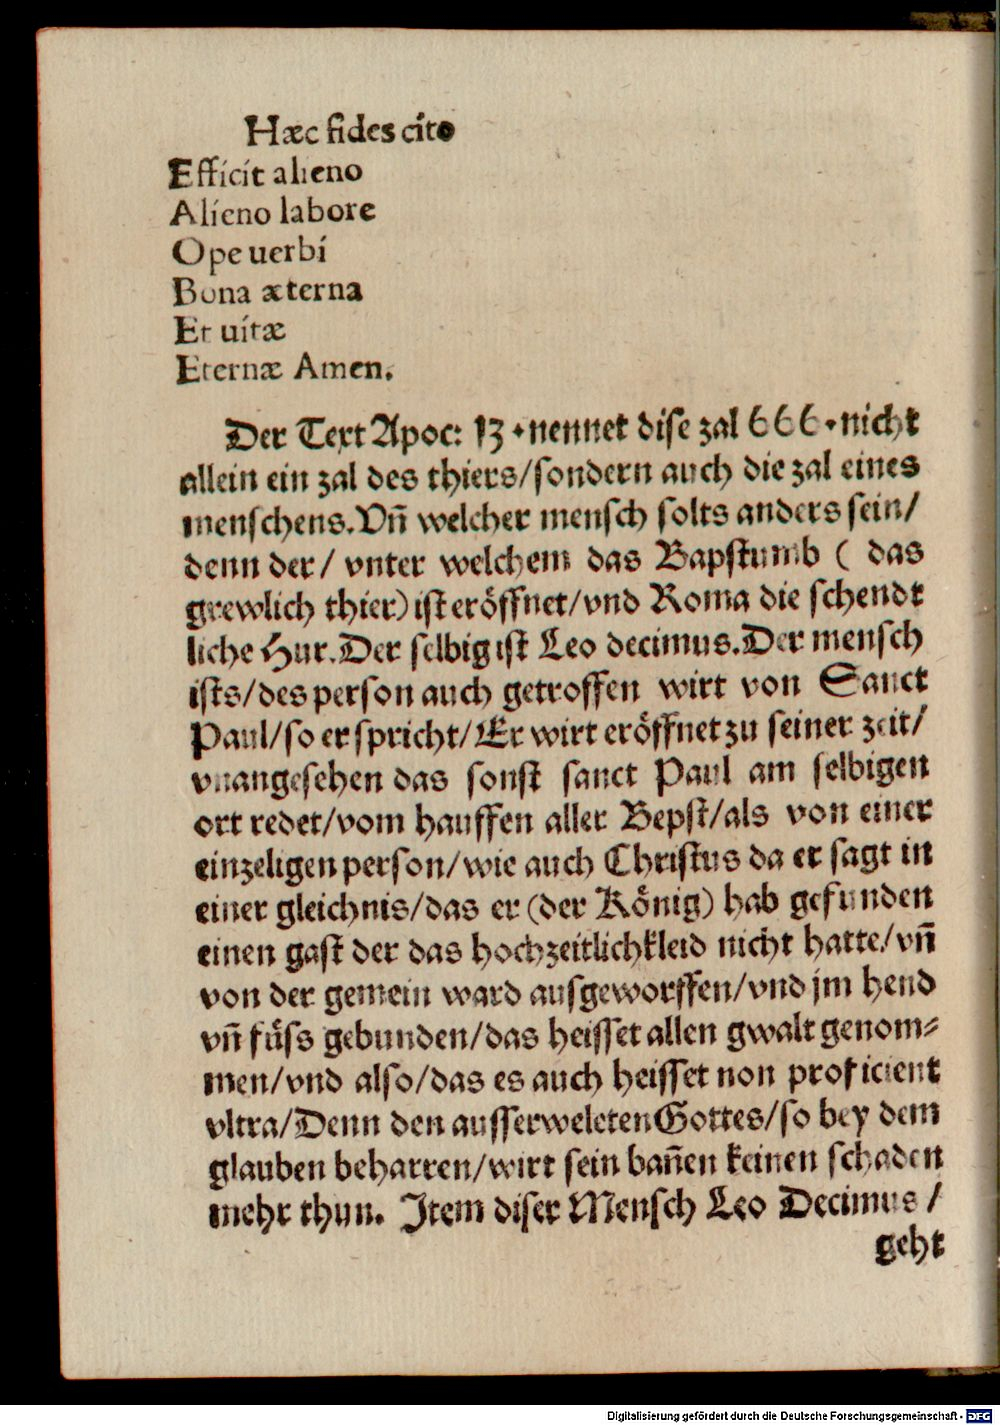 Hæc fides cito
Efficit alieno
Alieno labore
Ope uerbi
Bona æterna
Et uitæ
Eternæ Amen.
Der Text Apoc: 13 . nennet dise zal 666 . nicht
allein ein zal des thiers/sondern auch die zal eines
menschens. Vñ welcher mensch solts anders sein/
denn der/ vnter welchem das Bapstumb ( das
grewlich thier) ist eröffnet/vnd Roma die schendt
liche Hur. Der selbig ist Leo decimus. Der mensch
ists/des person auch getroffen wirt von Sanct
Paul/so er spricht/Er wirt eröffnet zu seiner zeit/
vnangesehen das sonst sanct Paul am selbigen
ort redet/vom hauffen aller Bepst/als von einer
einzeligen person/wie auch Christus da er sagt in
einer gleichnis/das er (der König) hab gefunden
einen gast der das hochzeitlichkleid nicht hatte/vñ
von der gemein ward ausgeworffen/vnd jm hend
vñ füss gebunden/das heisset allen gwalt genom-
men/vnd also/das es auch heisset non proficient
vltra/Denn den ausserweleten Gottes/so bey dem
glauben beharren/wirt sein bañen keinen schaden
mehr thun. Item diser Mensch Leo Decimus /
geht
Digitalisierung gefördert durch die Deutsche Forschungsgemeinschaft - DFG